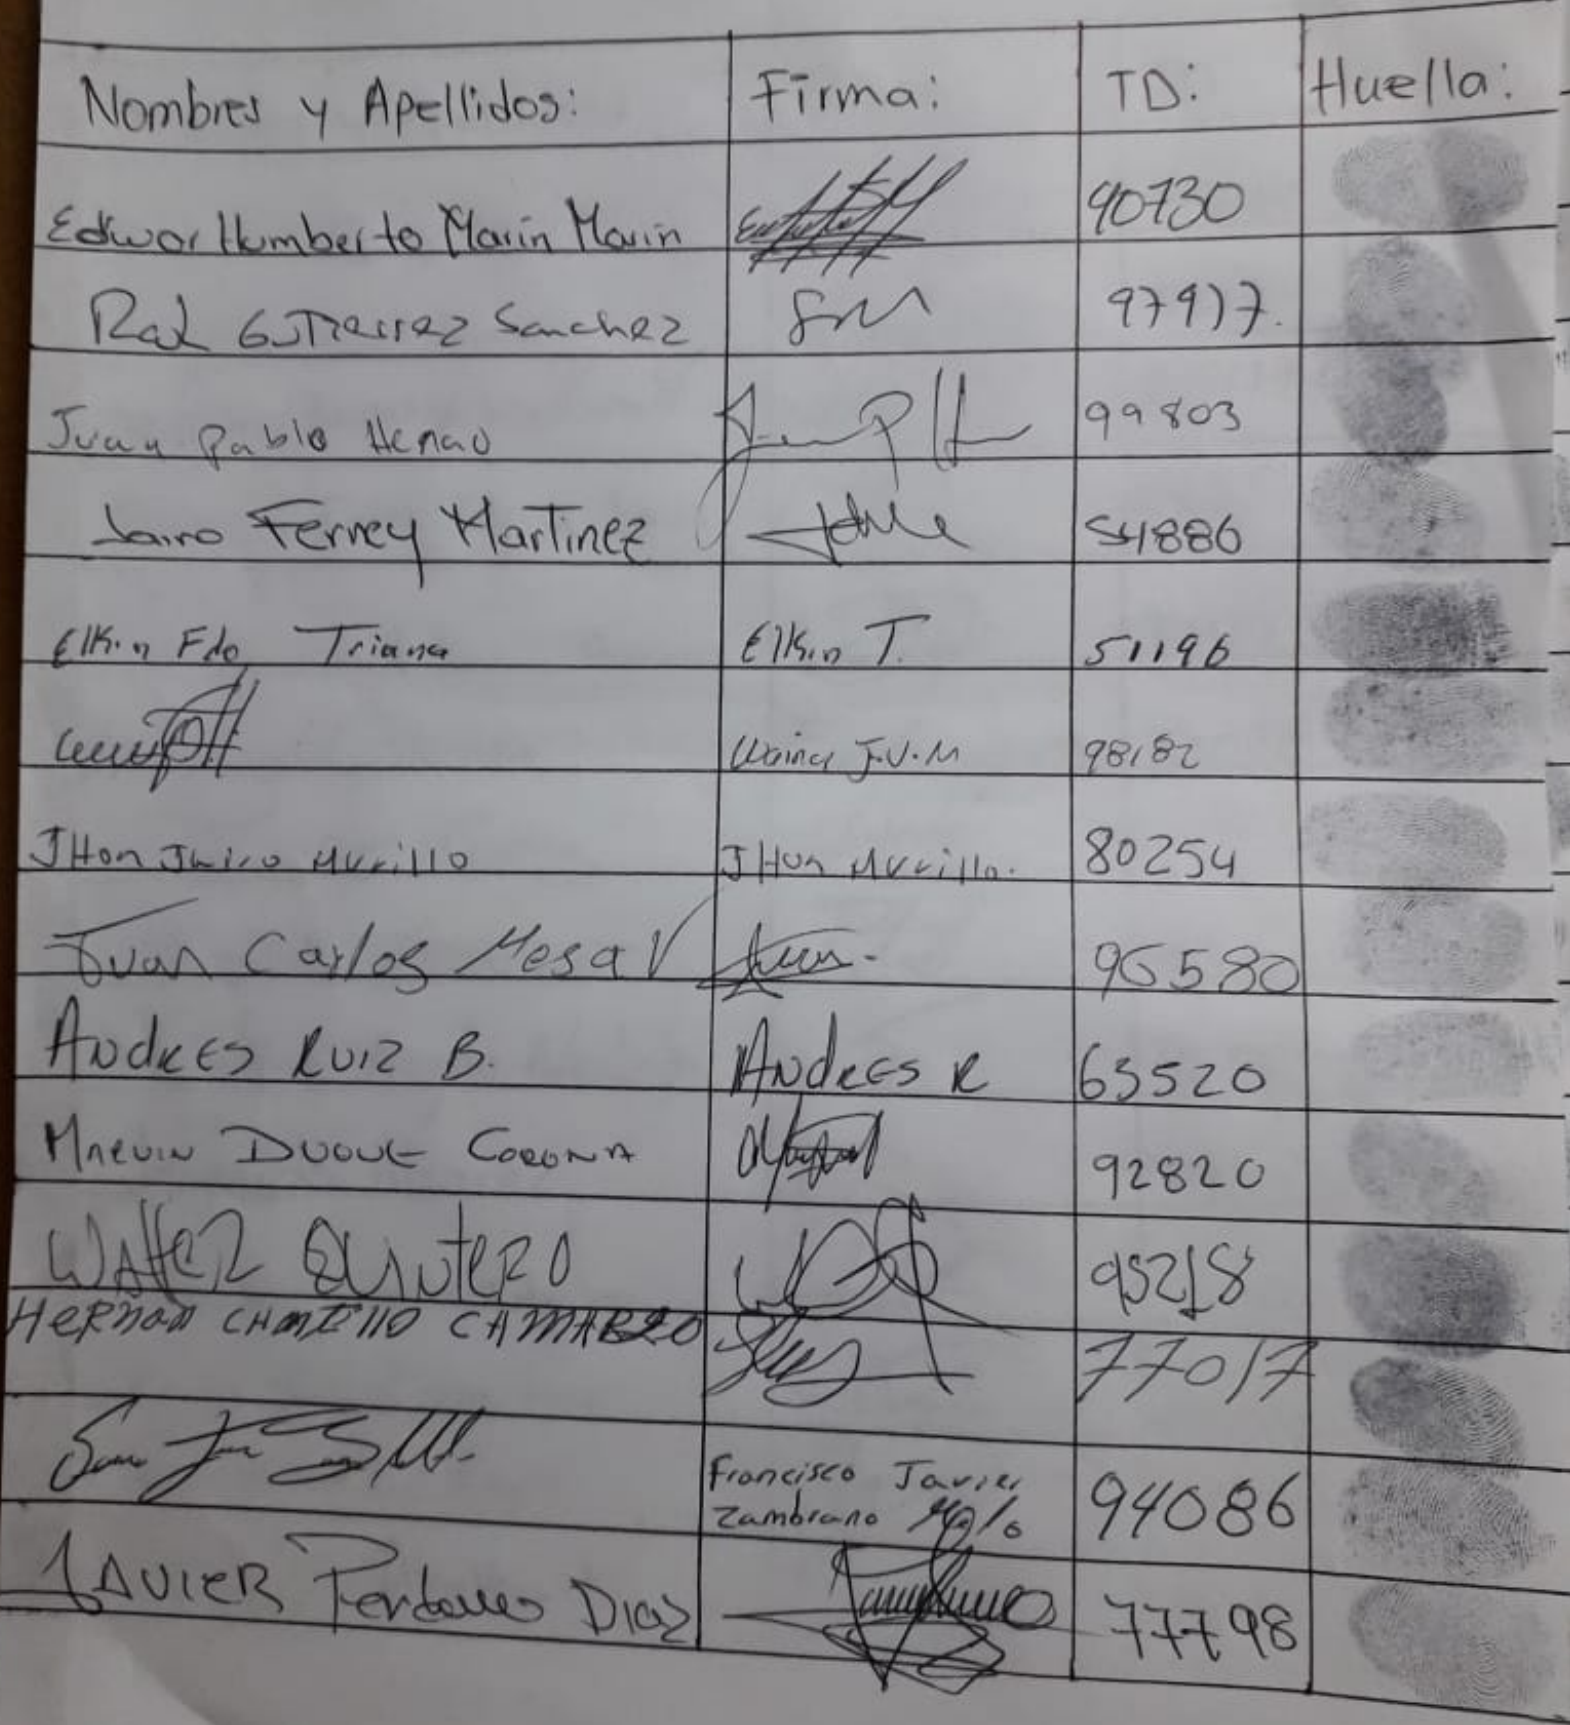 Nombres y Apellidos: Firma: TD: Huella:
Edwar Humberto Marin Marin 40730
Gutierrez Sanchez 97917.
Juan Pablo Henao 99803
Jairo Ferney Martinez 54886
Elkin Fdo Triana Elkin T. 51196
J.V.M 98182
JHon Jairo Murillo JHon Murillo. 80254
Juan Carlos Mesa V 95580
Andres Ruiz B. Andres R 63520
Marvin Duque Corona 92820
Walter Quintero 95218
Hernan Camilo Camargo 77017
Francisco Javier
Zambrano 94086
Javier Perdomo Diaz 77798